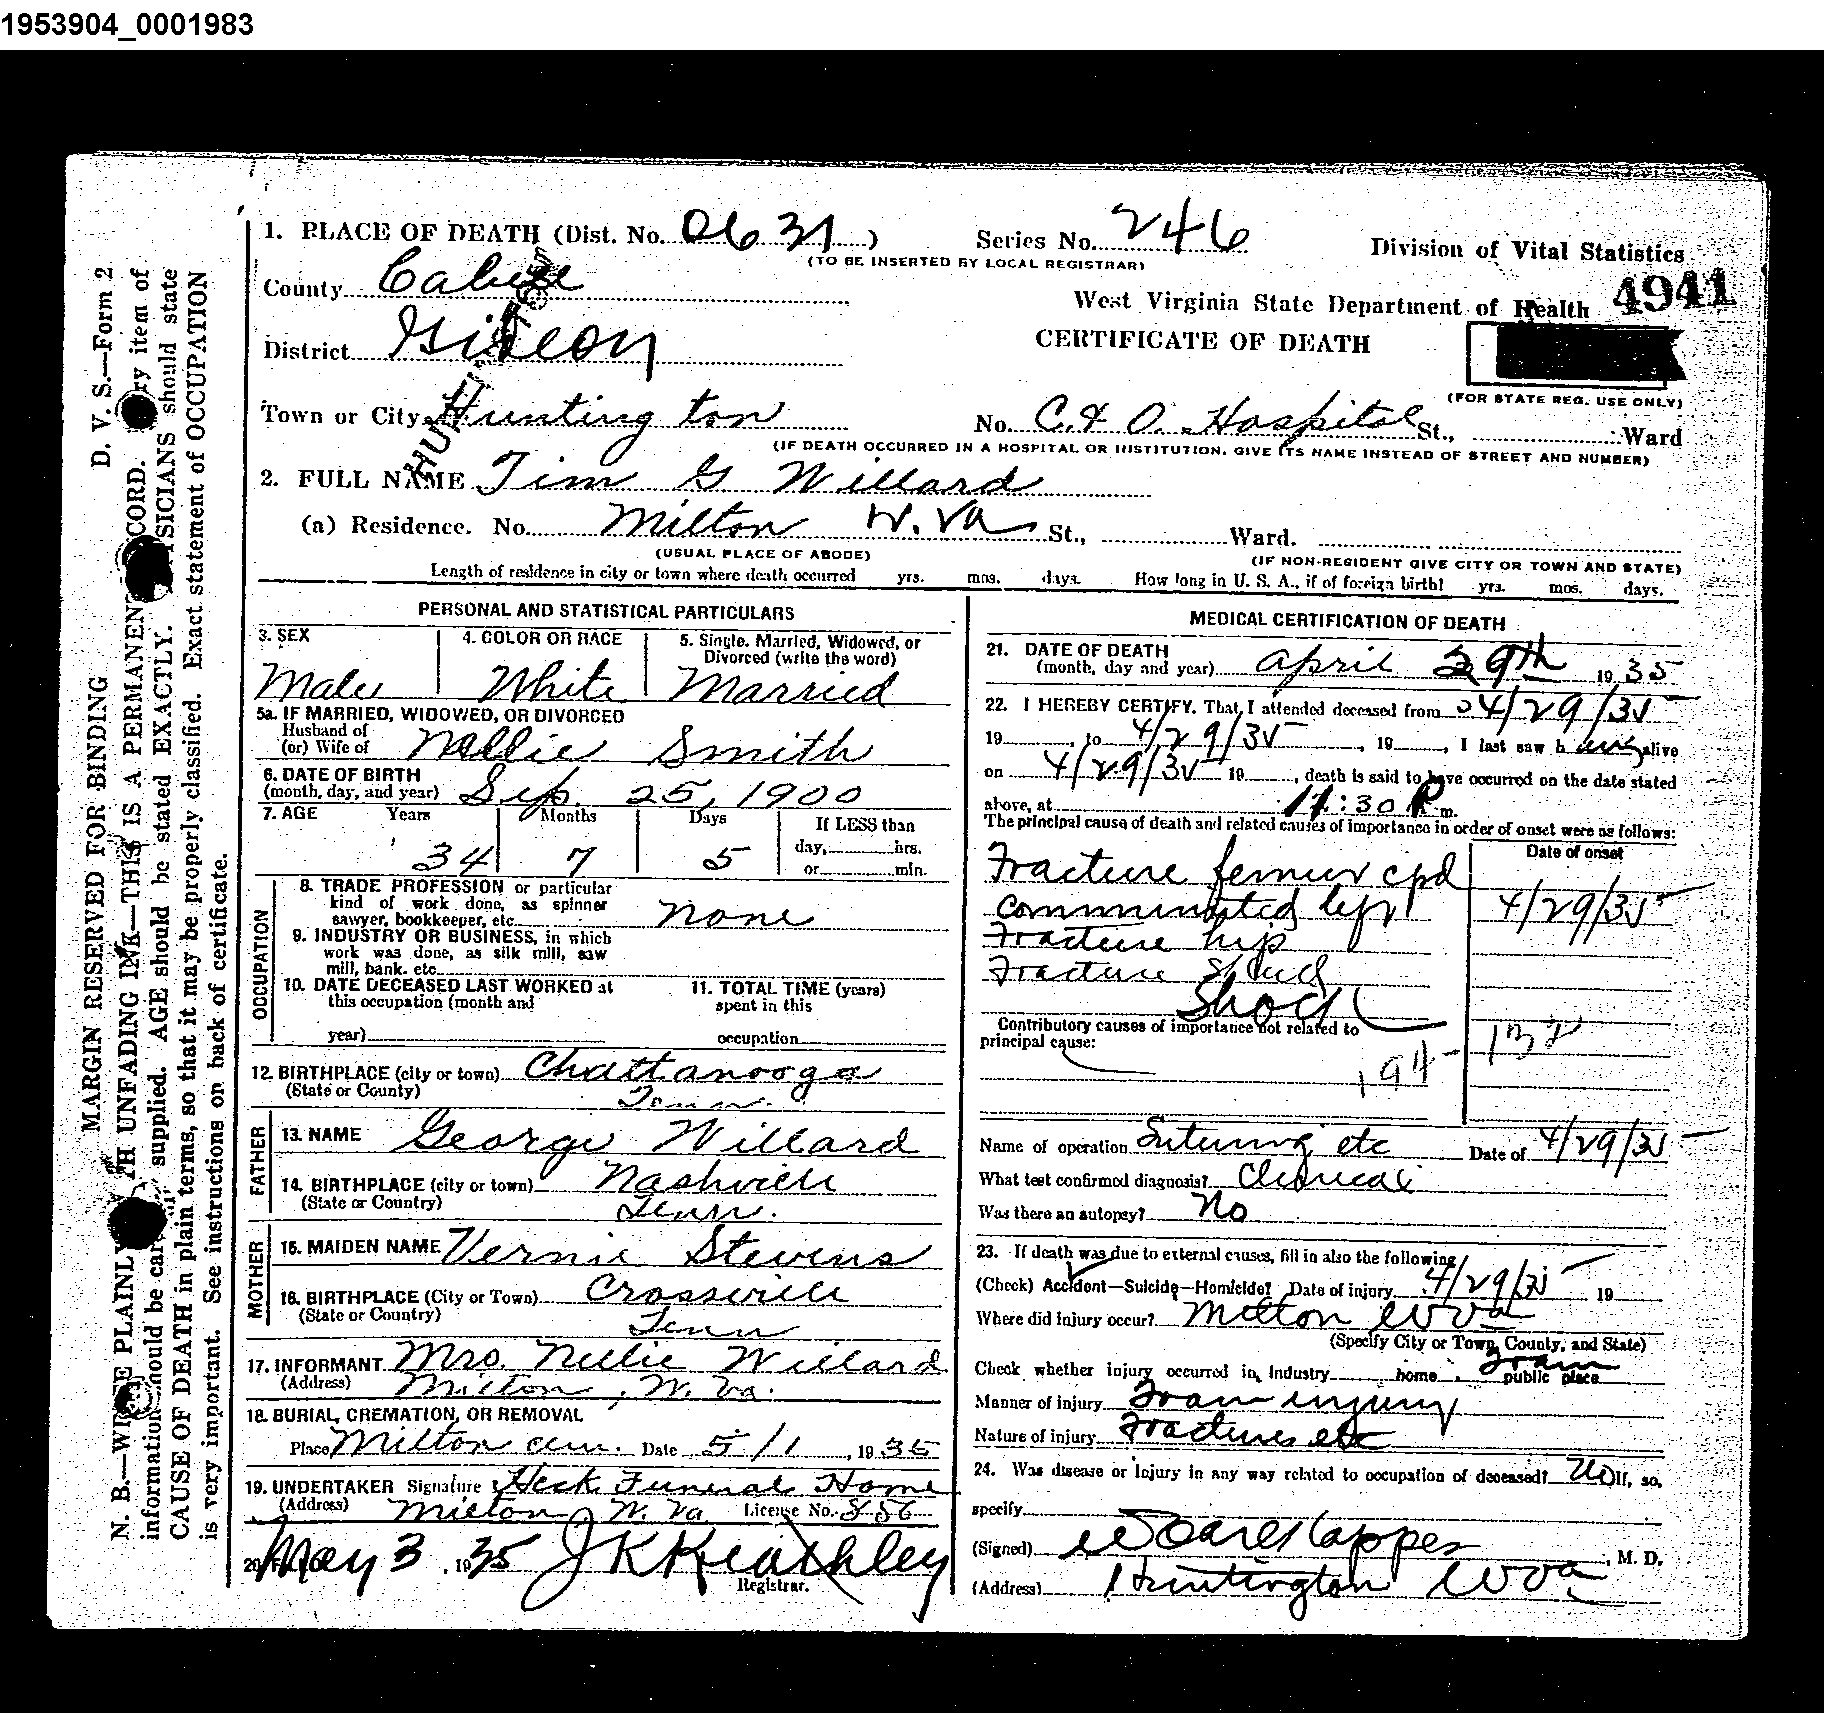 1953904_0001983
D. V. S.—Form 2
MARGIN RESERVED FOR BINDING
N. B.—WRITE PLAINLY WITH UNFADING INK—THIS IS A PERMANENT RECORD. Every item of
information should be carefully supplied. AGE should be stated EXACTLY. PHYSICIANS should state
CAUSE OF DEATH in plain terms, so that it may be properly classified. Exact statement of OCCUPATION
is very important. See instructions on back of certificate.
1. PLACE OF DEATH (Dist. No. 0631) Series No. 246
(TO BE INSERTED BY LOCAL REGISTRAR)
Division of Vital Statistics
County Cabell
West Virginia State Department of Health 4941
District Gideon
CERTIFICATE OF DEATH
(FOR STATE REG. USE ONLY)
Town or City Huntington No. C. & O. Hospital St., Ward
(IF DEATH OCCURRED IN A HOSPITAL OR INSTITUTION, GIVE ITS NAME INSTEAD OF STREET AND NUMBER)
2. FULL NAME Tim G Willard
(a) Residence. No. Milton W. Va St., Ward.
(USUAL PLACE OF ABODE) (IF NON-RESIDENT GIVE CITY OR TOWN AND STATE)
Length of residence in city or town where death occurred yrs. mos. days. How long in U. S. A., if of foreign birth? yrs. mos. days.
PERSONAL AND STATISTICAL PARTICULARS
3. SEX 4. COLOR OR RACE 5. Single, Married, Widowed, or
Divorced (write the word)
Male White Married
5a. IF MARRIED, WIDOWED, OR DIVORCED
Husband of
(or) Wife of Nellie Smith
6. DATE OF BIRTH
(month, day, and year) Sep. 25, 1900
7. AGE Years Months Days If LESS than
day, hrs.
34 7 5 or min.
OCCUPATION
8. TRADE PROFESSION or particular
kind of work done, as spinner
sawyer, bookkeeper, etc. none
9. INDUSTRY OR BUSINESS, in which
work was done, as silk mill, saw
mill, bank, etc.
10. DATE DECEASED LAST WORKED at 11. TOTAL TIME (years)
this occupation (month and spent in this
year) occupation
12. BIRTHPLACE (city or town) Chattanooga
(State or County) Tenn.
FATHER
13. NAME George Willard
14. BIRTHPLACE (city or town) Nashville
(State or Country) Tenn.
MOTHER
15. MAIDEN NAME Vernie Stevens
16. BIRTHPLACE (City or Town) Crossville
(State or Country) Tenn
17. INFORMANT Mrs. Nellie Willard
(Address) Milton, W. Va.
18. BURIAL, CREMATION, OR REMOVAL
Place Milton cem. Date 5/1, 1935
19. UNDERTAKER Signature Heck Funeral Home
(Address) Milton W. Va License No. 856
20. May 3, 1935 J K Keathley
Registrar.
MEDICAL CERTIFICATION OF DEATH
21. DATE OF DEATH
(month, day and year) April 29th 1935
22. I HEREBY CERTIFY, That, I attended deceased from 4/29/35
19 , to 4/29/35, 19 , I last saw h alive
on 4/29/35 19 , death is said to have occurred on the date stated
above, at 11:30 P m.
The principal cause of death and related causes of importance in order of onset were as follows:
Date of onset
Fracture femur cpd
comminuted left 4/29/35
Fracture hip
Fracture Skull
Shock
Contributory causes of importance not related to
principal cause:
194 132
Name of operation Suturing etc Date of 4/29/35
What test confirmed diagnosis? Clinical
Was there an autopsy? No
23. If death was due to external causes, fill in also the following
(Check) Accident—Suicide—Homicide? Date of injury 4/29/35 19
Where did injury occur? Milton W Va
(Specify City or Town, County, and State)
Check whether injury occurred in, Industry home, public place Train
Manner of injury Train injury
Nature of injury Fractures etc
24. Was disease or injury in any way related to occupation of deceased? No If, so,
specify
(Signed) , M. D.
(Address) Huntington W Va